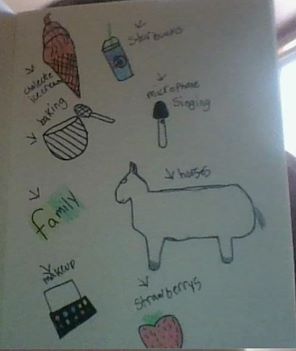 Starbucks
icecream
baking
microphone
Singing
family
horses
makeup
strawberrys